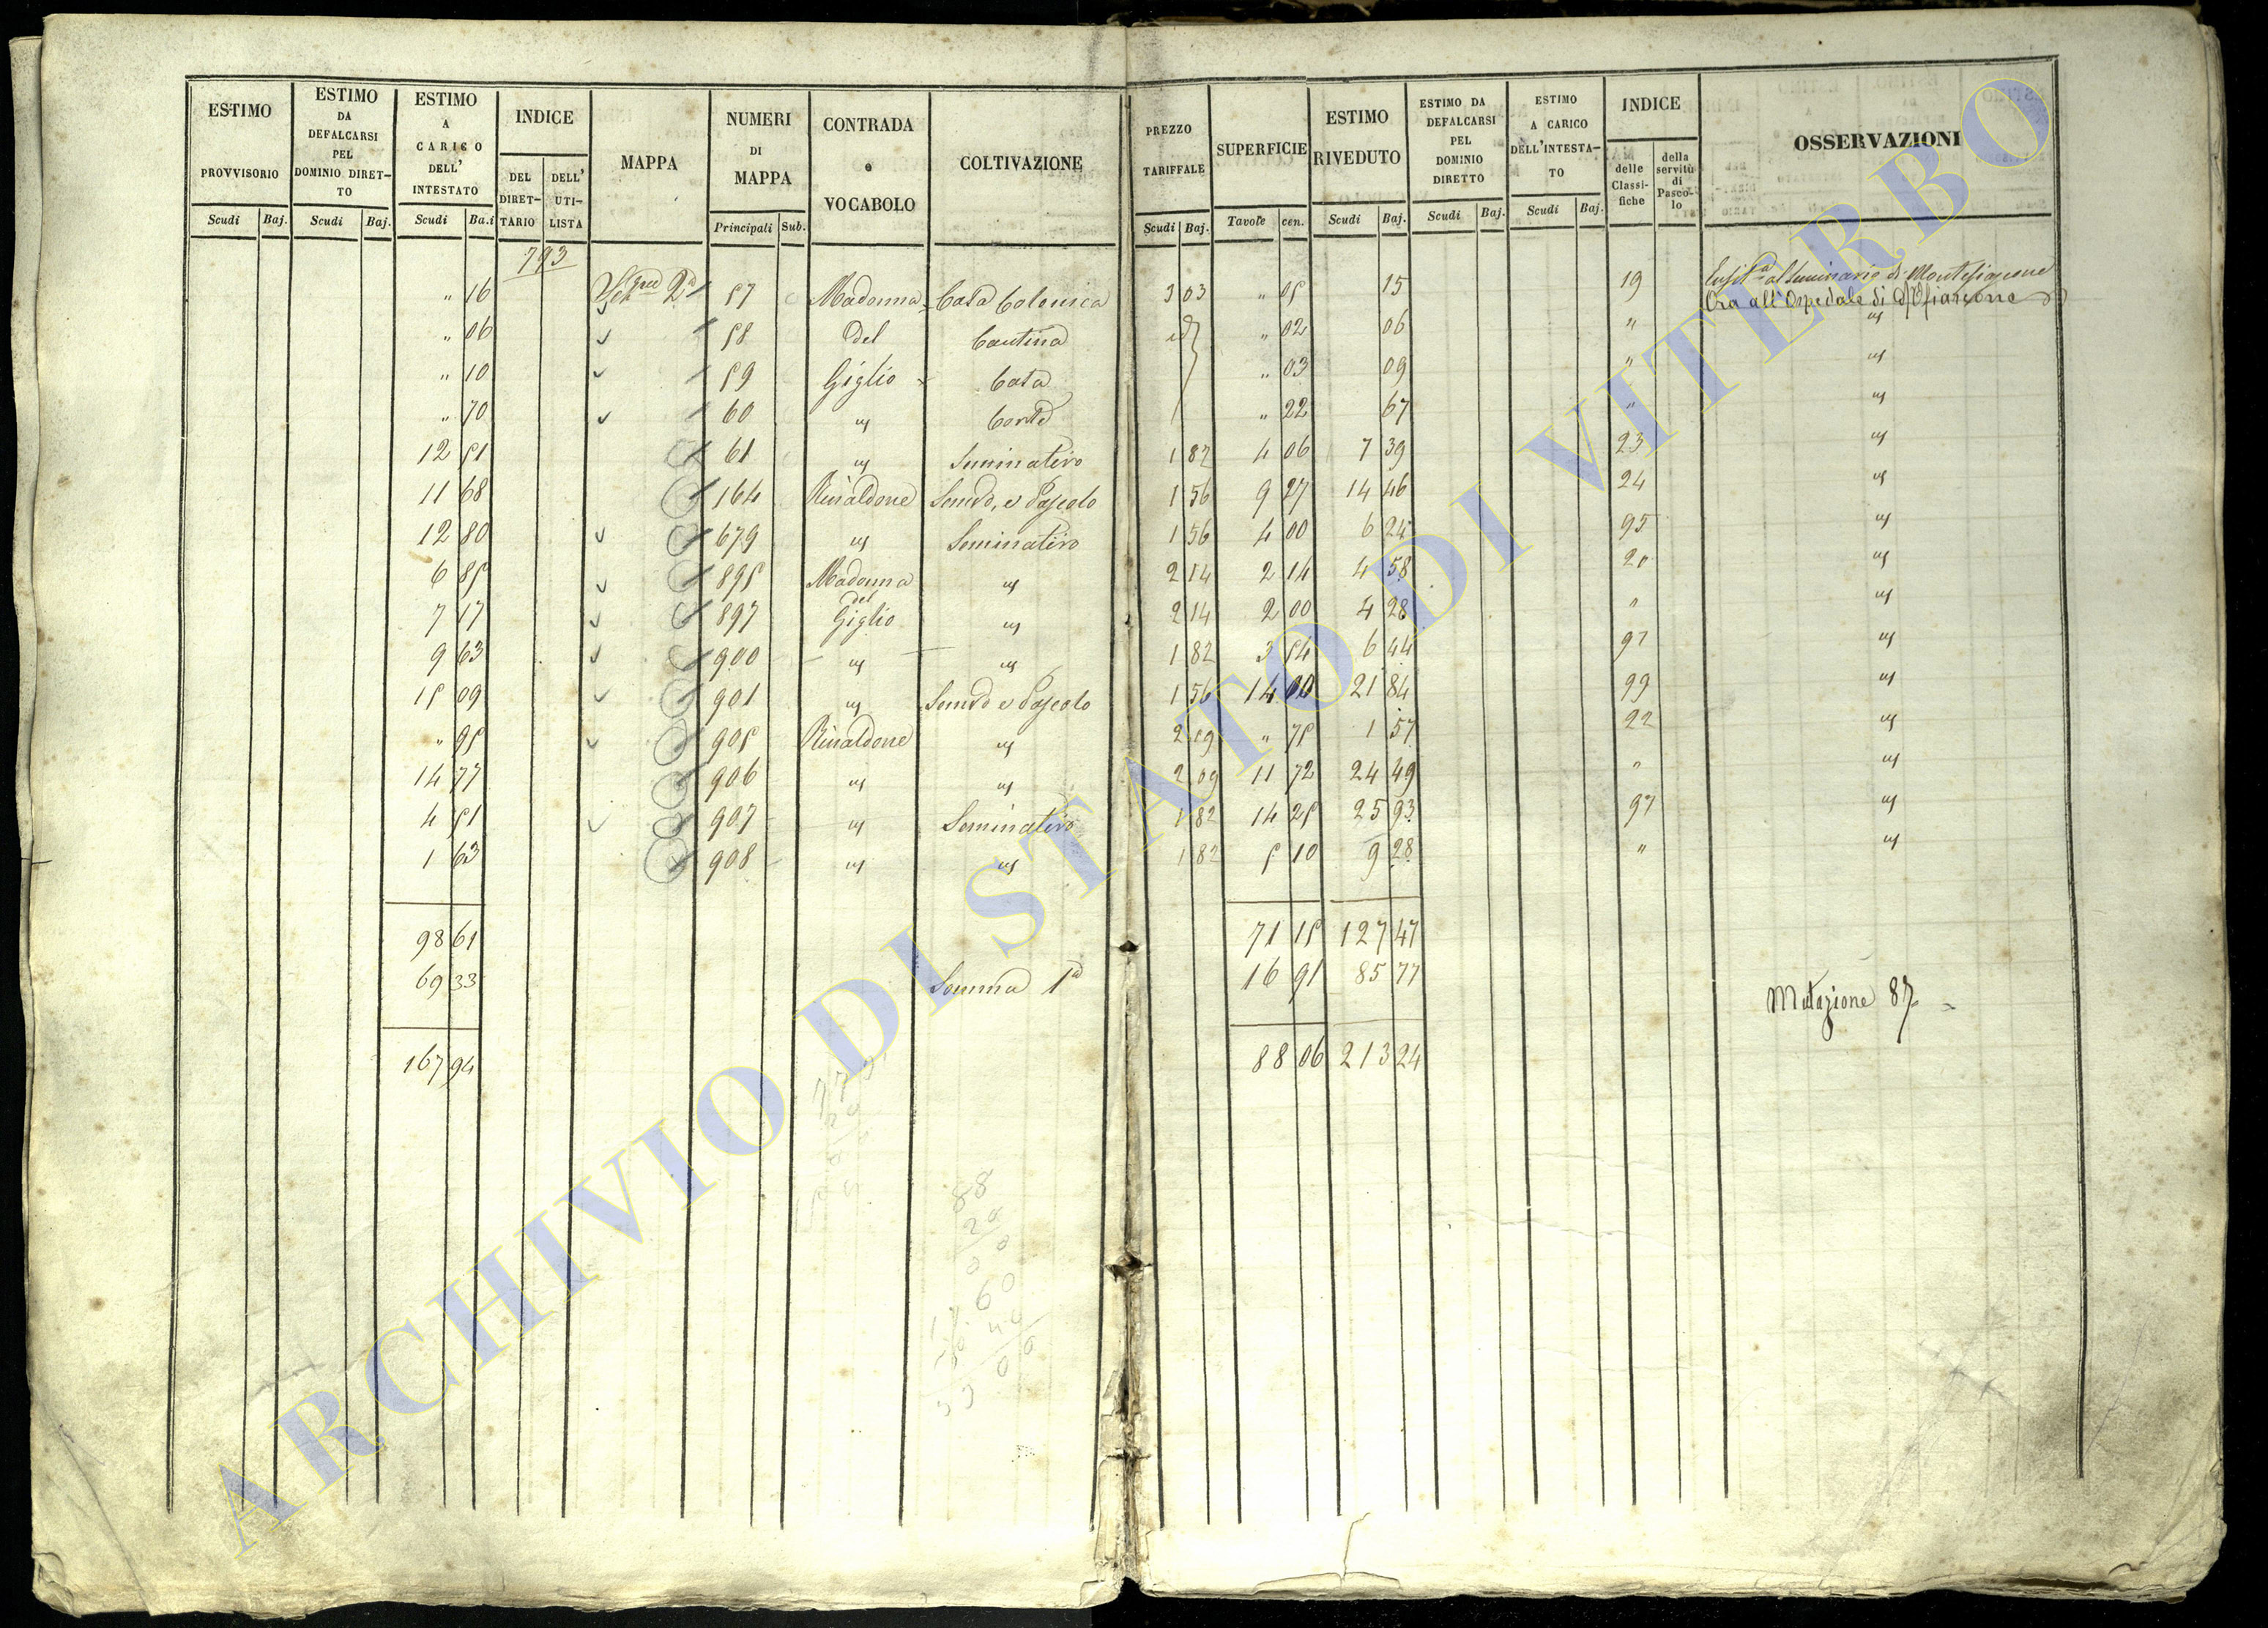 ESTIMO PROVVISORIO | ESTIMO DA DEFALCARSI PEL DOMINIO DIRETTO | ESTIMO A CARICO DELL' INTESTATO | INDICE | MAPPA | NUMERI DI MAPPA | CONTRADA o VOCABOLO | COLTIVAZIONE | PREZZO TARIFFALE | SUPERFICIE | ESTIMO RIVEDUTO | ESTIMO DA DEFALCARSI PEL DOMINIO DIRETTO | ESTIMO A CARICO DELL'INTESTATO | INDICE | OSSERVAZIONI
Scudi | Baj. | Scudi | Baj. | Scudi | Ba.i | DEL DIRETTARIO | DELL' UTILISTA | Principali | Sub. | Scudi | Baj. | Tavole | cen. | Scudi | Baj. | Scudi | Baj. | Scudi | Baj. | delle Classifiche | della servitù di Pascolo
793
" 16 | 2ª | 57 | Madonna | Casa Colonica | 3 03 | " 05 | 15 | 19 | al Seminario di Montefiascone
Ora all'Ospedale di
" 06 | 58 | del | Cantina | id | " 02 | 06 | " | "
" 10 | 59 | Giglio | Casa | " 03 | 09 | " | "
" 70 | 60 | " | Corte | " 22 | 67 | " | "
12 51 | 61 | " | Seminativo | 1 82 | 4 06 | 7 39 | 23 | "
11 68 | 164 | Rinaldone | Semvo, e Pascolo | 1 56 | 9 27 | 14 46 | 24 | "
12 80 | 679 | " | Seminativo | 1 56 | 4 00 | 6 24 | 95 | "
6 85 | 895 | Madonna | " | 2 14 | 2 14 | 4 58 | 20 | "
del
7 17 | 897 | Giglio | " | 2 14 | 2 00 | 4 28 | " | "
9 63 | 900 | " | " | 1 82 | 3 54 | 6 44 | 97 | "
15 09 | 901 | " | Semvo e Pascolo | 1 56 | 14 00 | 21 84 | 99 | "
" 95 | 905 | Rinaldone | " | 2 09 | " 75 | 1 57 | 22 | "
14 77 | 906 | " | " | 2 09 | 11 72 | 24 49 | " | "
4 51 | 907 | " | Seminativo | 1 82 | 14 25 | 25 93 | 97 | "
1 63 | 908 | " | " | 1 82 | 5 10 | 9 28 | " | "
98 61 | 71 15 | 127 47
69 33 | Somma 1ª | 16 91 | 85 77 | Mutazione 87
167 94 | 88 06 | 213 24
88
60
ARCHIVIO DI STATO DI VITERBO